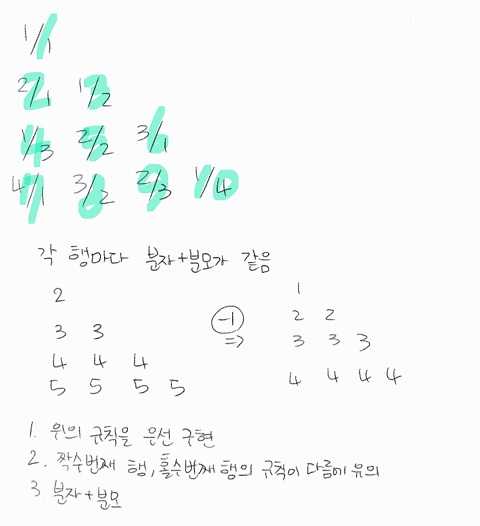 1/1
2/1 1/2
1/3 2/2 3/1
4/1 3/2 2/3 1/4
각 행마다 분자+분모가 같음
2
3 3
4 4 4
5 5 5 5
-1
=>
1
2 2
3 3 3
4 4 4 4
1. 위의 규칙을 우선 구현
2. 짝수번째 행, 홀수번째 행의 규칙이 다름에 유의
3 분자+분모